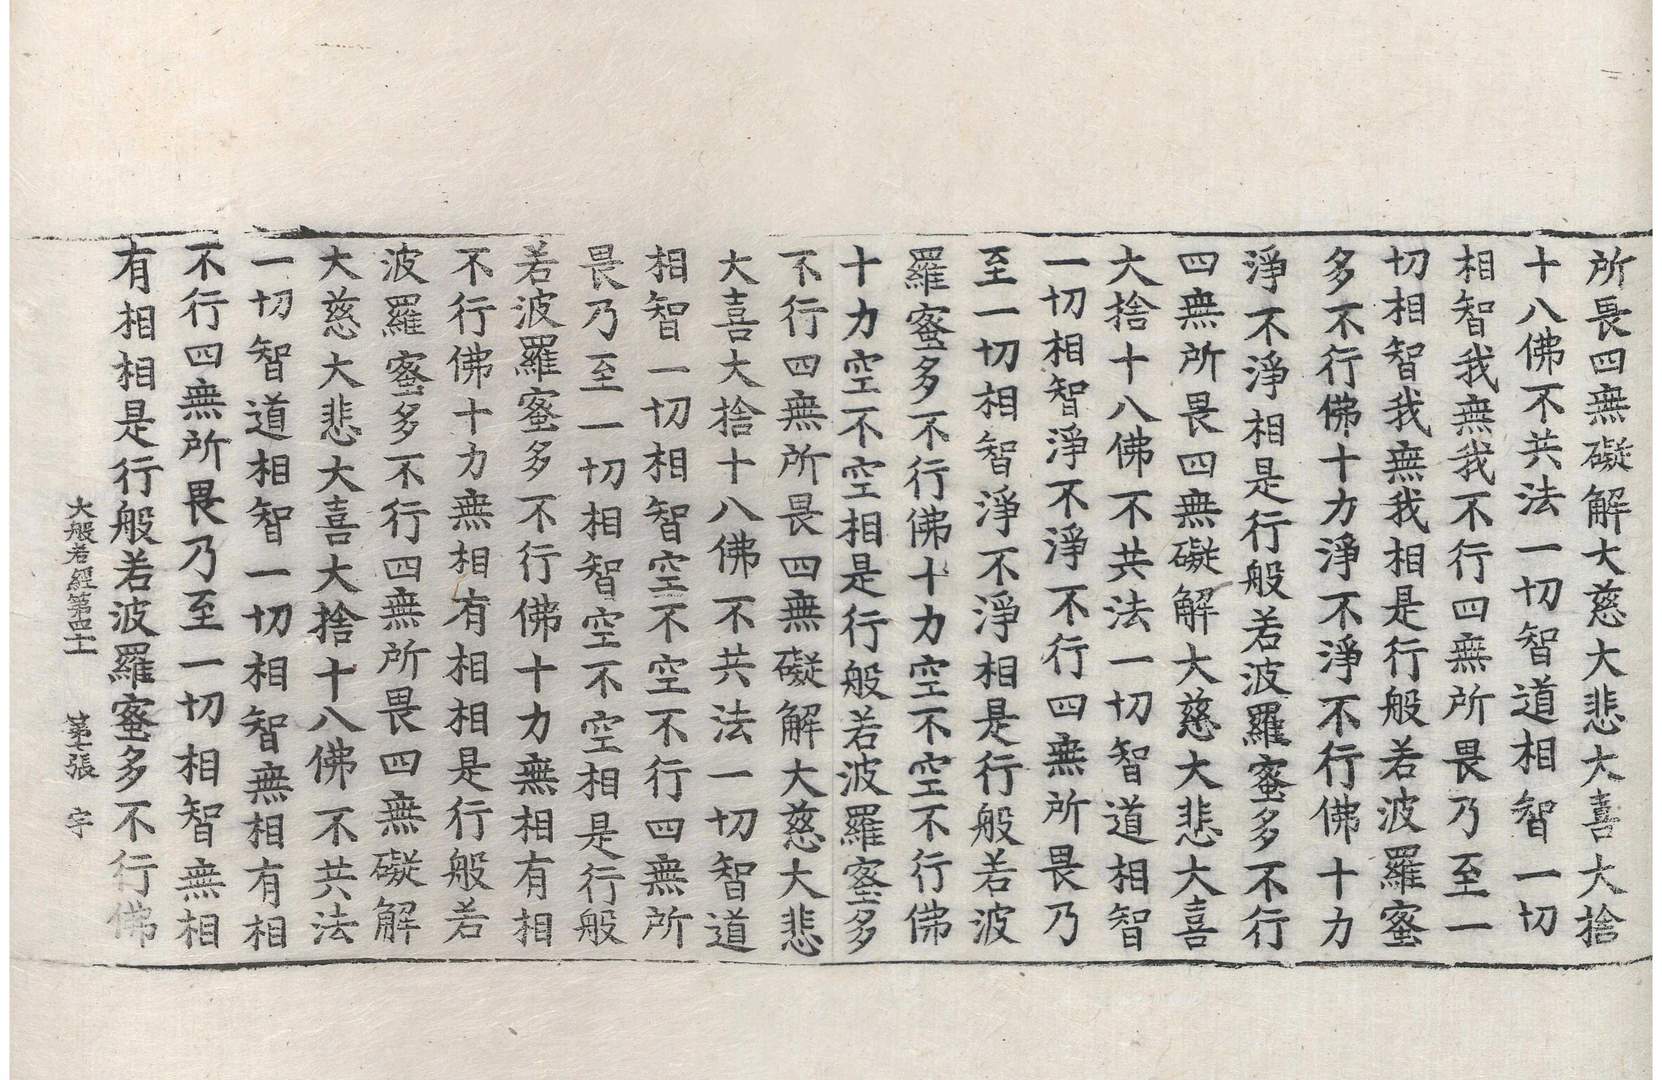 所畏四無礙解大慈大悲大喜大捨
十八佛不共法一切智道相智一切
相智我無我不行四無所畏乃至一
切相智我無我相是行般若波羅蜜
多不行佛十力淨不淨不行佛十力
淨不淨相是行般若波羅蜜多不行
四無所畏四無礙解大慈大悲大喜
大捨十八佛不共法一切智道相智
一切相智淨不淨不行四無所畏乃
至一切相智淨不淨相是行般若波
羅蜜多不行佛十力空不空不行佛
十力空不空相是行般若波羅蜜多
不行四無所畏四無礙解大慈大悲
大喜大捨十八佛不共法一切智道
相智一切相智空不空不行四無所
畏乃至一切相智空不空相是行般
若波羅蜜多不行佛十力無相有相
不行佛十力無相有相相是行般若
波羅蜜多不行四無所畏四無礙解
大慈大悲大喜大捨十八佛不共法
一切智道相智一切相智無相有相
不行四無所畏乃至一切相智無相
有相相是行般若波羅蜜多不行佛
大般若經第四十一 第七張 宇